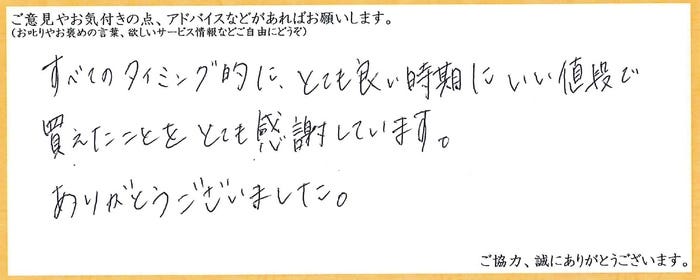 ご意見やお気付きの点、アドバイスなどがあればお願いします。
(お叱りやお褒めの言葉、欲しいサービス情報などご自由にどうぞ)
すべてのタイミング的に、とても良い時期にいい値段で
買えたことをとても感謝しています。
ありがとうございました。
ご協力、誠にありがとうございます。